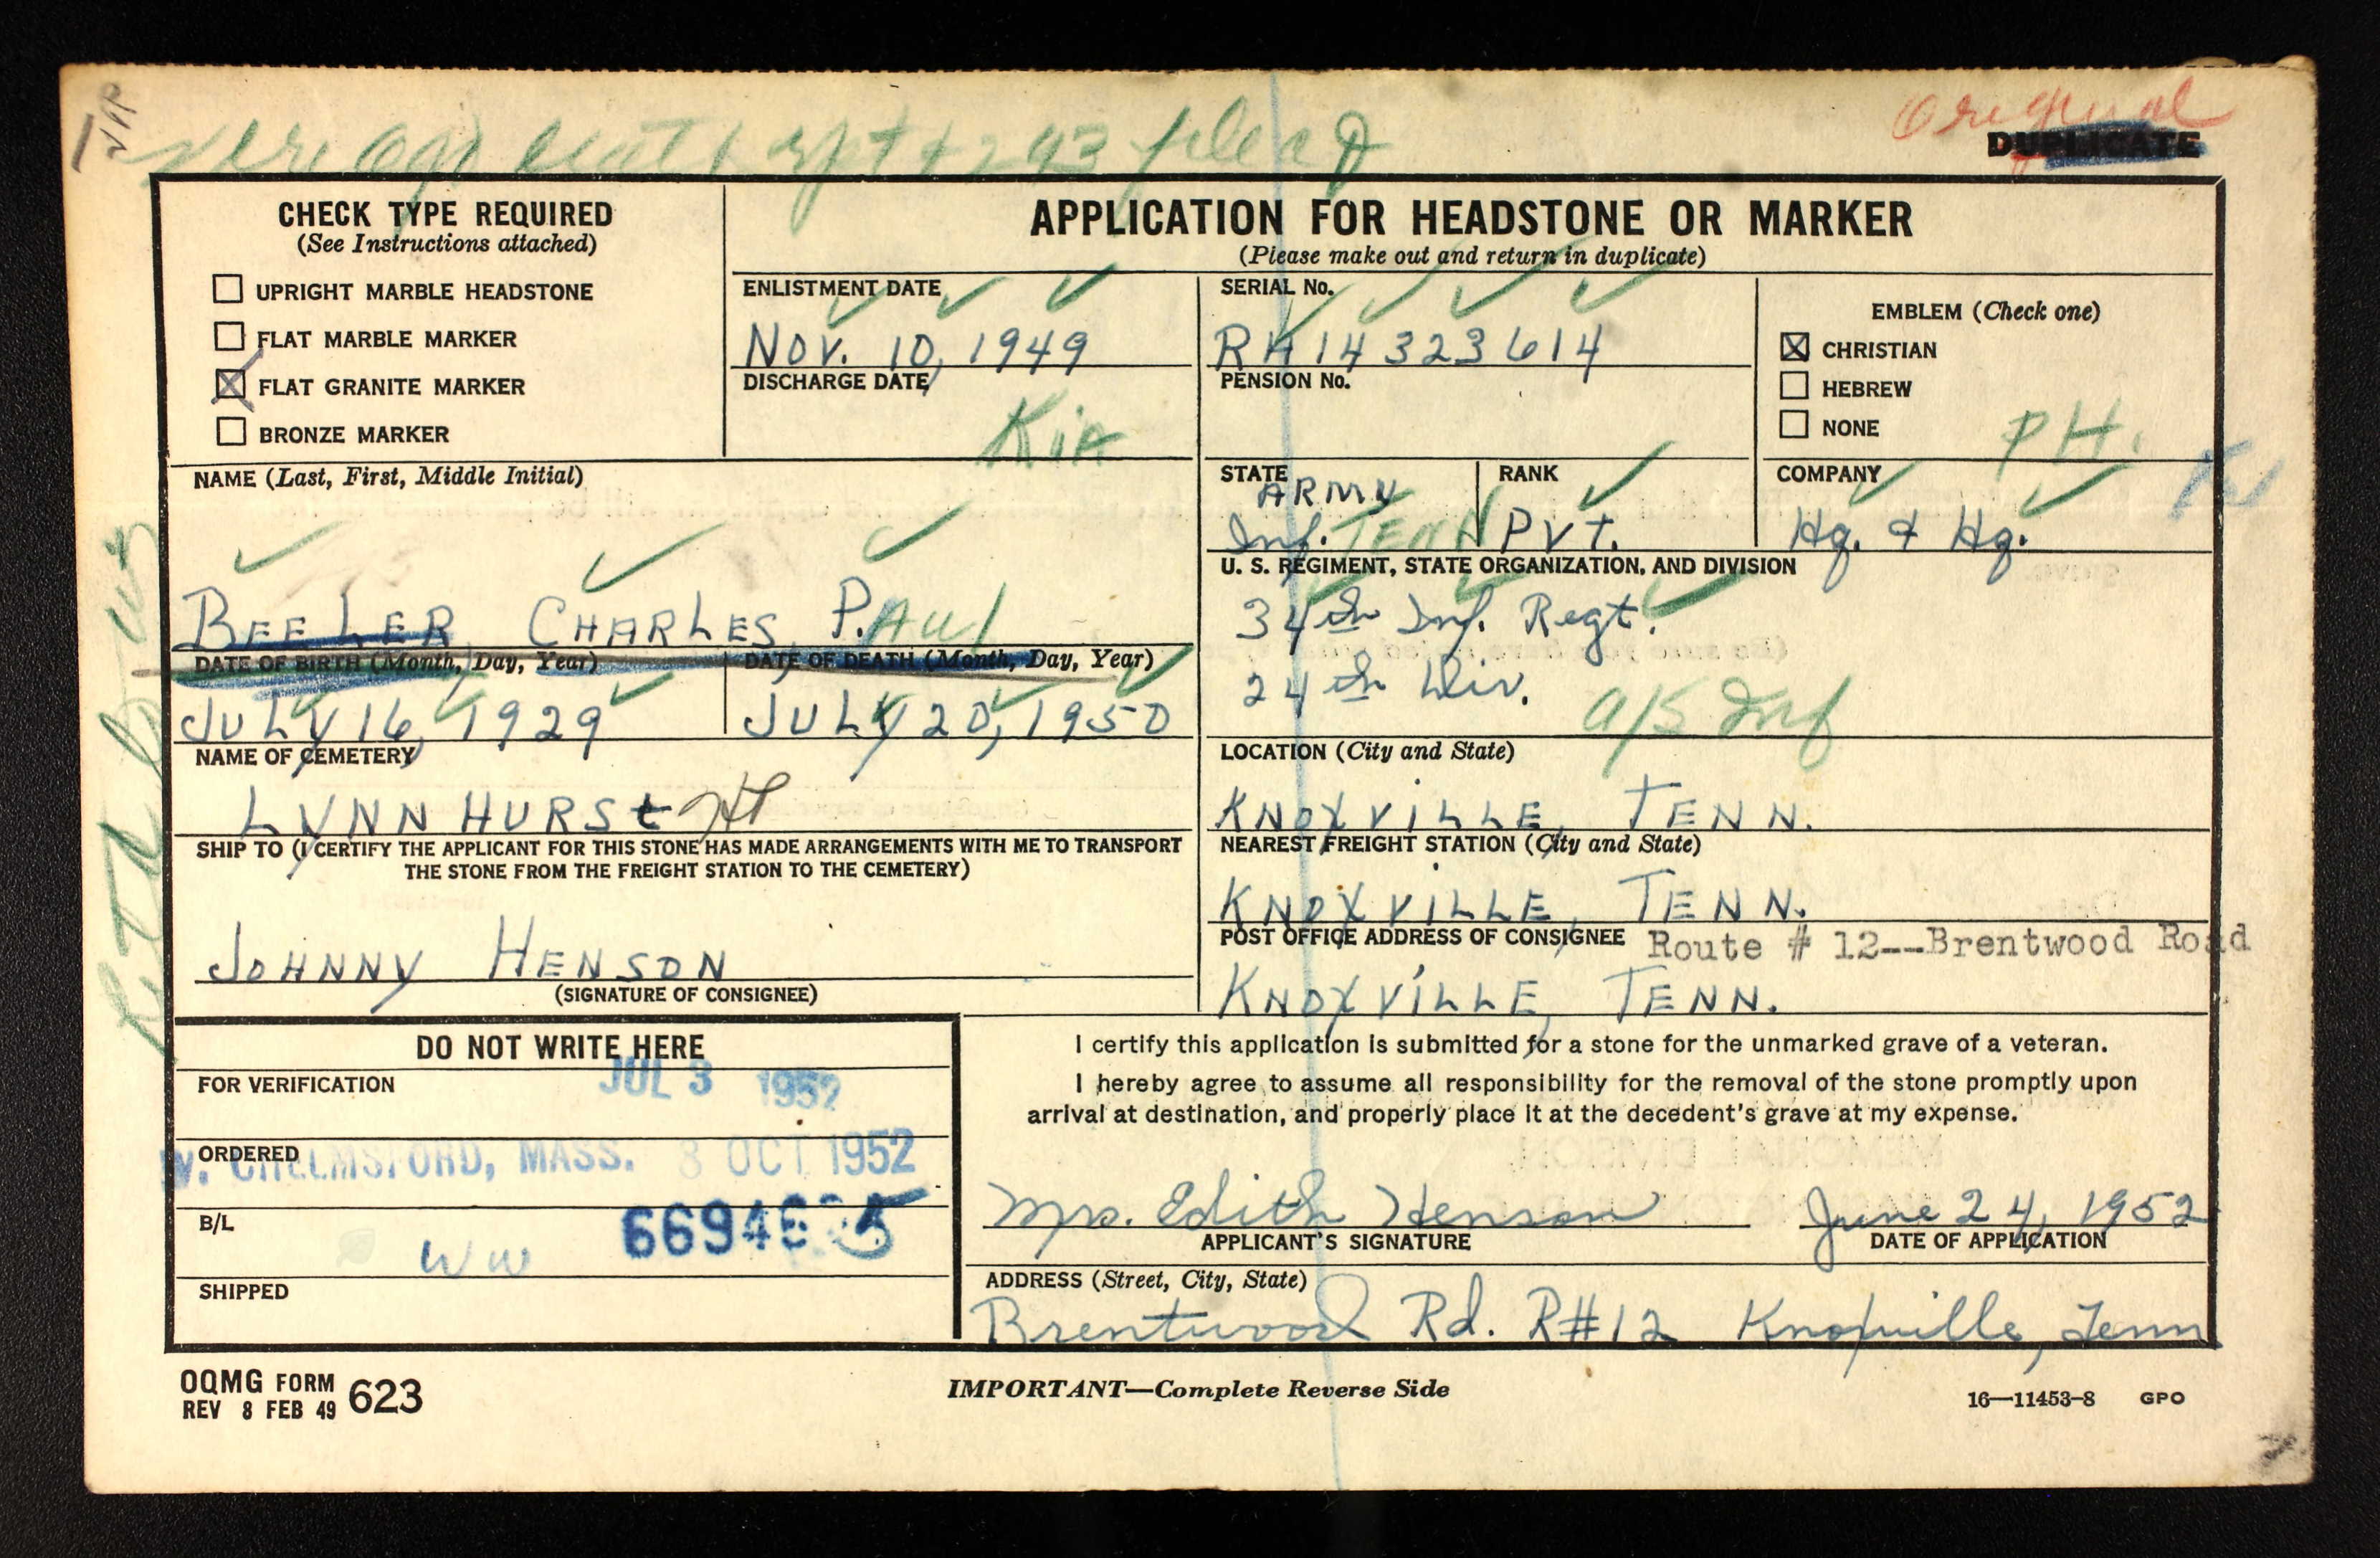 Original
DUPLICATE
CHECK TYPE REQUIRED
(See Instructions attached)
UPRIGHT MARBLE HEADSTONE
FLAT MARBLE MARKER
FLAT GRANITE MARKER
BRONZE MARKER
APPLICATION FOR HEADSTONE OR MARKER
(Please make out and return in duplicate)
ENLISTMENT DATE
NOV. 10, 1949
DISCHARGE DATE
KIA
SERIAL No.
RA 14 323 614
PENSION No.
EMBLEM (Check one)
CHRISTIAN
HEBREW
NONE
PH.
NAME (Last, First, Middle Initial)
BEELER, CHARLES P.Aul
STATE
ARMY
Inf. TENN
RANK
PVT.
COMPANY
Hq. & Hq.
U. S. REGIMENT, STATE ORGANIZATION, AND DIVISION
34th Inf. Regt.
24th Div.
A/S Inf
DATE OF BIRTH (Month, Day, Year)
JULY 16, 1929
DATE OF DEATH (Month, Day, Year)
JULY 20, 1950
NAME OF CEMETERY
LYNNHURSt
LOCATION (City and State)
KNOXVILLE, TENN.
SHIP TO (I CERTIFY THE APPLICANT FOR THIS STONE HAS MADE ARRANGEMENTS WITH ME TO TRANSPORT
THE STONE FROM THE FREIGHT STATION TO THE CEMETERY)
JOHNNY HENSON
(SIGNATURE OF CONSIGNEE)
NEAREST FREIGHT STATION (City and State)
KNOXVILLE, TENN.
POST OFFICE ADDRESS OF CONSIGNEE Route # 12--Brentwood Road
KNOXVILLE, TENN.
DO NOT WRITE HERE
FOR VERIFICATION
JUL 3 1952
ORDERED
W. CHELMSFORD, MASS. 8 OCT 1952
B/L
WW
SHIPPED
I certify this application is submitted for a stone for the unmarked grave of a veteran.
I hereby agree to assume all responsibility for the removal of the stone promptly upon
arrival at destination, and properly place it at the decedent's grave at my expense.
Mrs. Edith Henson June 24, 1952
APPLICANT'S SIGNATURE DATE OF APPLICATION
ADDRESS (Street, City, State)
Brentwood Rd. R#12 Knoxville, Tenn
OQMG FORM 623
REV 8 FEB 49
IMPORTANT—Complete Reverse Side
16—11453-8 GPO